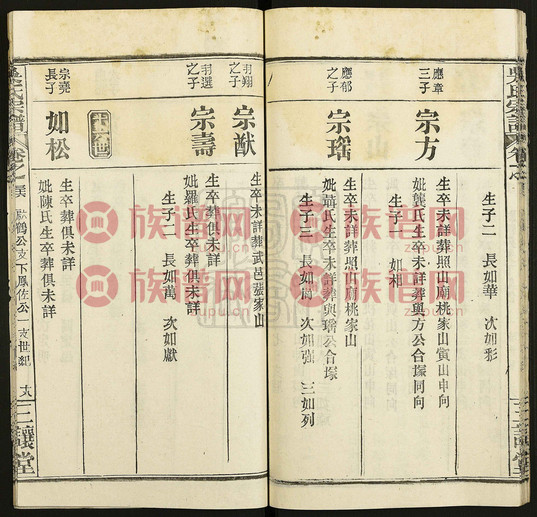 吳氏宗譜
卷之
三讓堂
生子二 長如華 次如彩
應章
三子
宗方
生卒未詳葬照山廟桃家山寅山申向
妣龔氏生卒未詳葬與方公合塚同向
生子一 如相
應郁
之子
宗瑤
生卒未詳葬照山廟桃家山
妣聶氏生卒未詳葬與瑤公合塚
生子三 長如 次如強 三如列
羽翔
之子
宗猷
生卒未詳葬武邑 家山
羽選
之子
宗壽
生卒葬俱未詳
妣羅氏生卒葬俱未詳
生子二 長如萬 次如獻
十六世
宗堯
長子
如松
生卒葬俱未詳
妣陳氏生卒葬俱未詳
吳氏宗譜
卷之
鶴公支下鳳佐公一支世紀
三讓堂
族譜网
zupu.cn
族譜网
zupu.cn
族譜网
zupu.cn